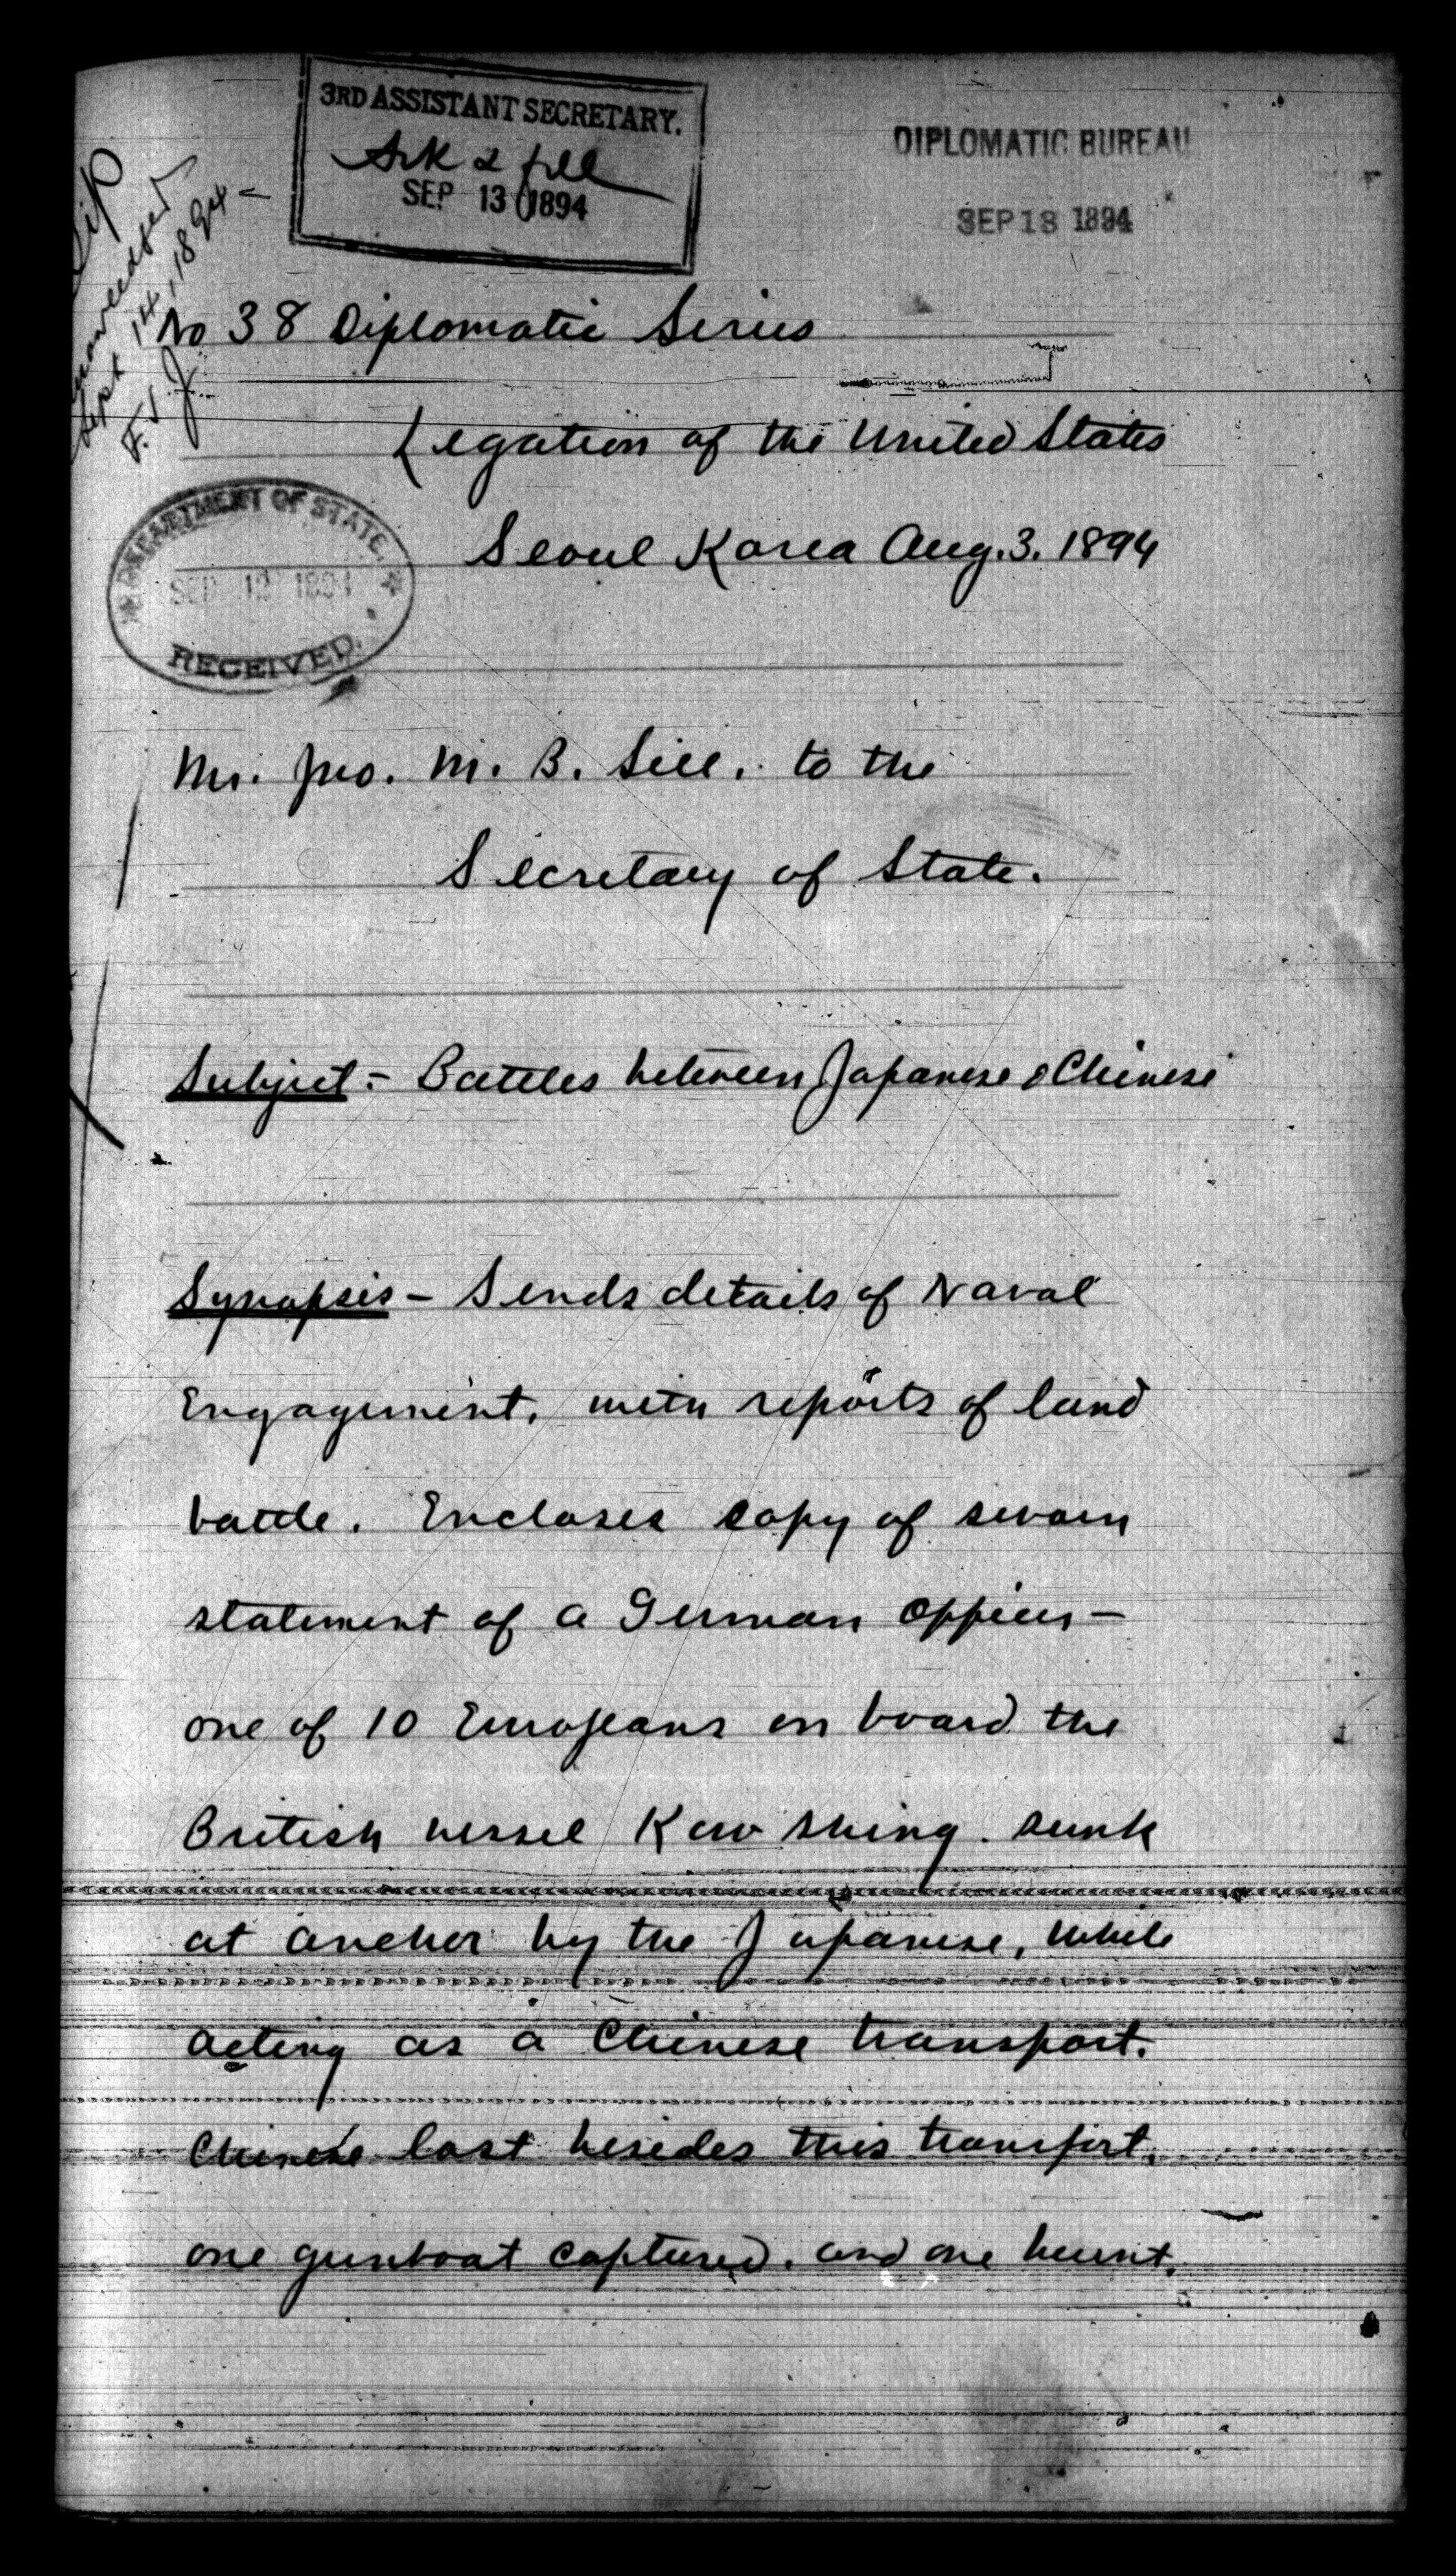 3RD ASSISTANT SECRETARY.
Ack & file
SEP 13 1894
DIPLOMATIC BUREAU
SEP 13 1894
Sept 14, 1894 -
F. J.
No 38 Diplomatic Series
Legation of the United States
Seoul Korea Aug. 3. 1894
DEPARTMENT OF STATE.
SEP 12 1894
RECEIVED.
Mr. Jno. M. B. Sill. to the
Secretary of State.
Subject - Battles between Japanese & Chinese
Synopsis - Sends details of Naval
Engagement, with reports of land
battle. Encloses copy of sworn
statement of a German officer -
one of 10 Europeans on board the
British vessel Kow Shing. sunk
at anchor by the Japanese, while
acting as a Chinese transport.
Chinese lost besides this transport,
one gunboat captured, and one burnt.